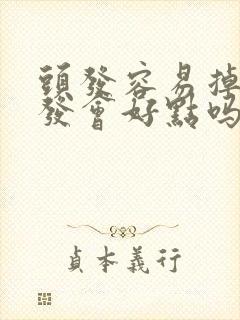 頭發容易掉
發會好點吗
貞本義行